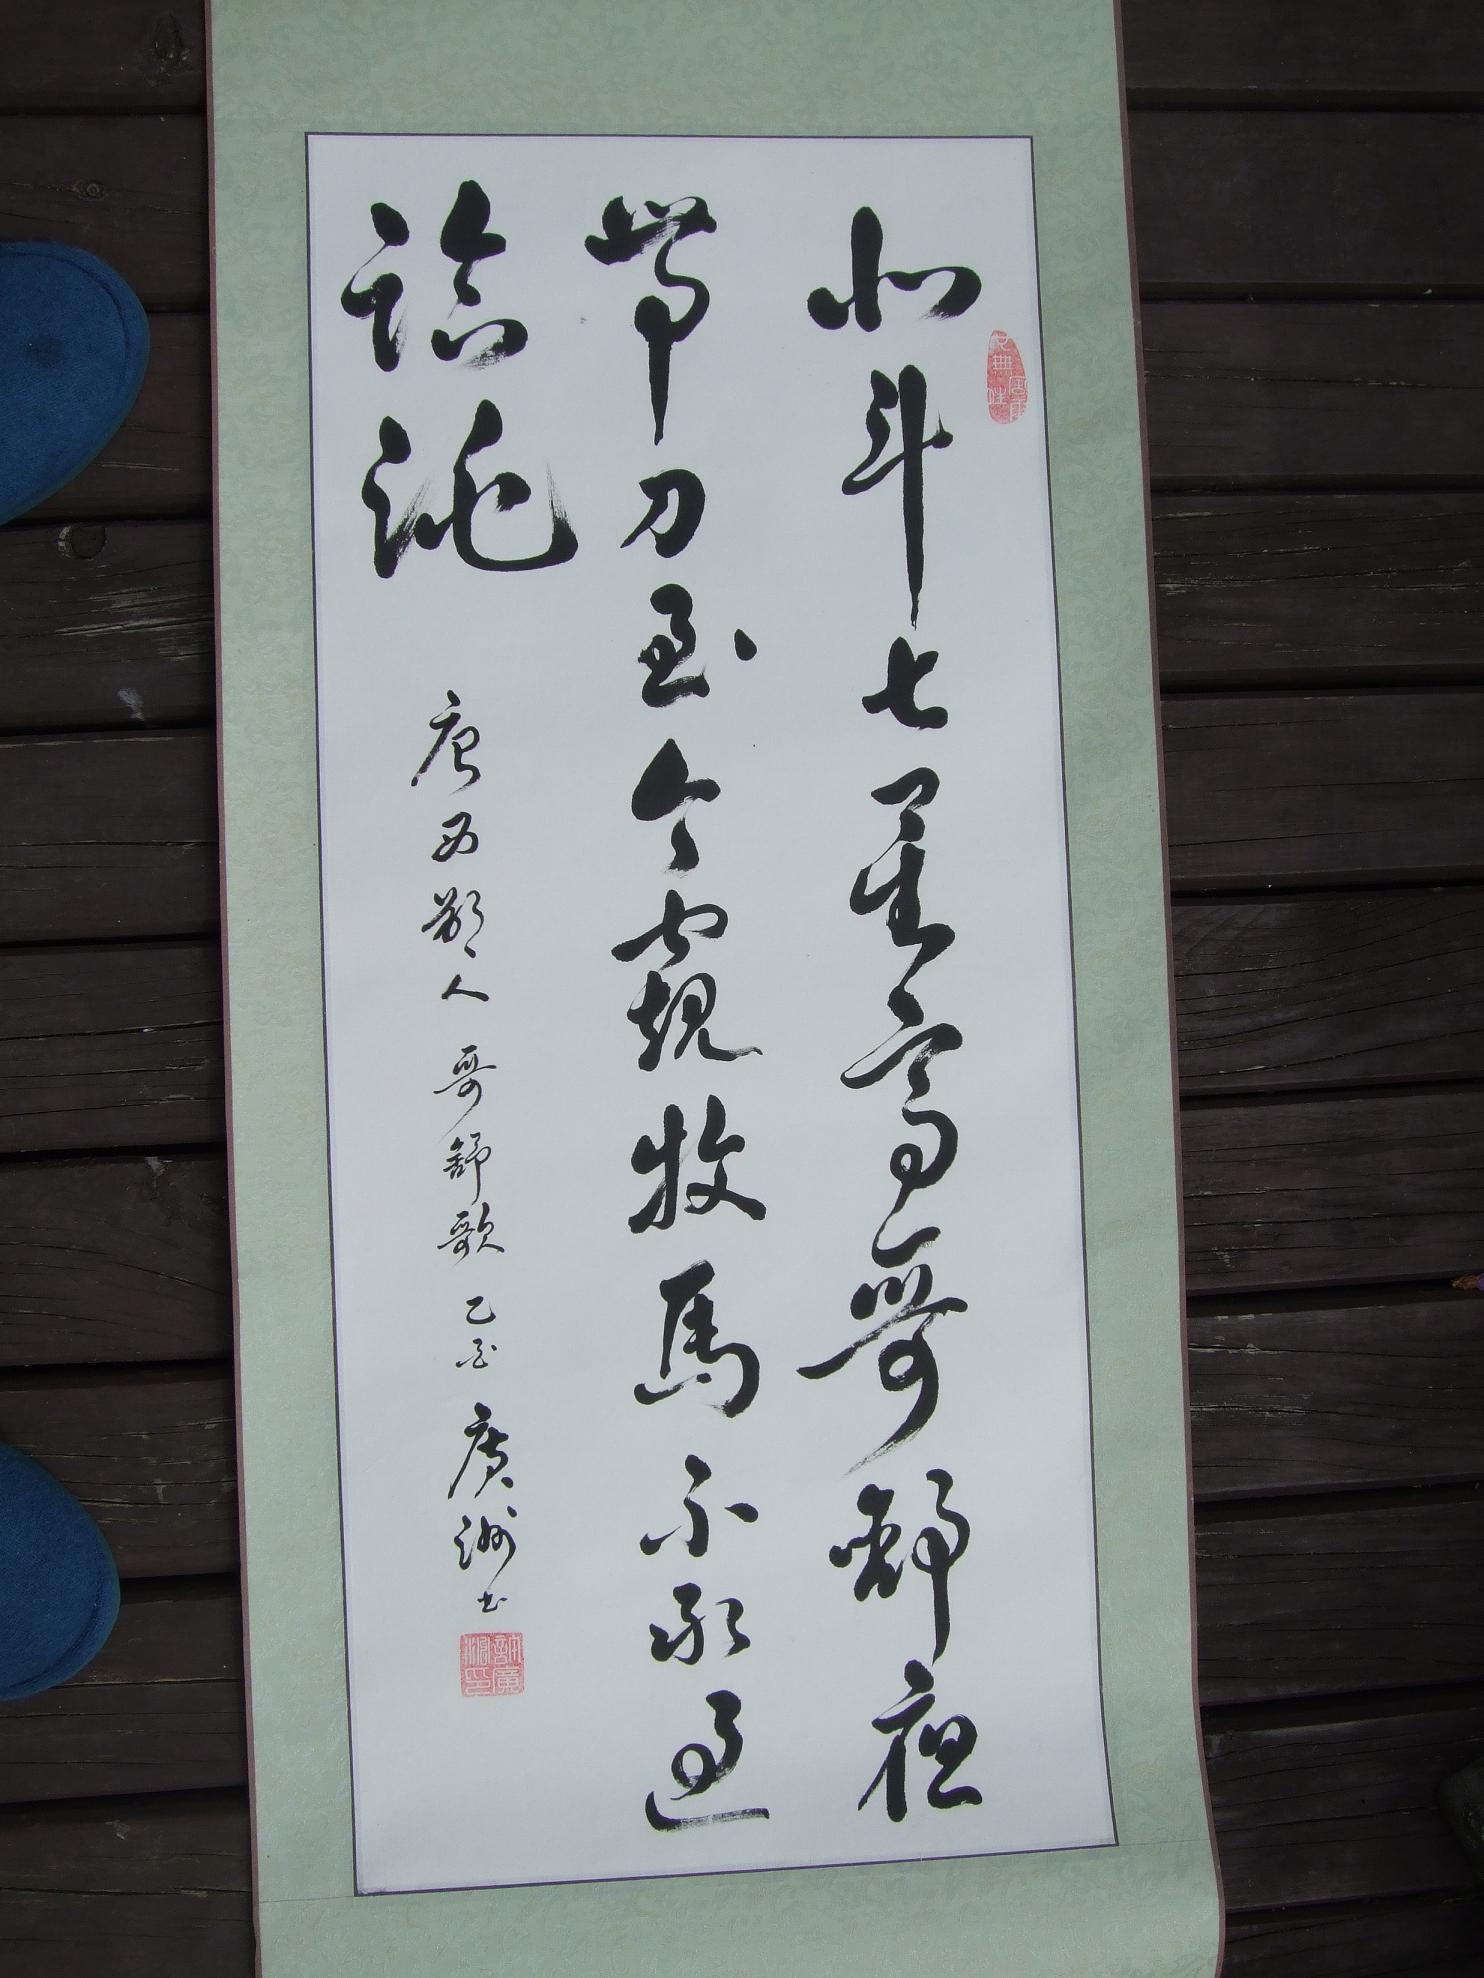 北斗七星高哥舒夜
帶刀至今窺牧馬不敢過
臨洮
唐西鄙人哥舒歌 乙亥 廣洲书